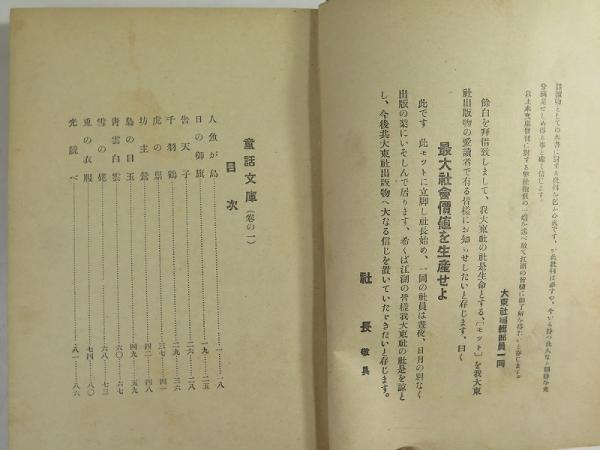 大東社編輯部員一同
餘白を拜借致しまして、我大東社の社是生命とする、「モット」を我大東
社出版物の愛讀家で有る皆様にお知らせしたいと存じます、曰く
最大社會價値を生産せよ
此です 此モットに立脚し社長始め、一同の社員は晝夜、日月の別なく
出版の業にいそしんで居ります、希くば江湖の皆様我大東社の社是を諒と
し、今後共大東社出版物へ大なる信じを置いていたゞきたいと存じます。
社長 敬具
童話文庫(卷の一)
目次
人魚が島……一…一八
日の御旗……一九…二五
告天子……二六…二八
千羽鶴……二九…三六
虎の皿……三七…四一
坊主鶯……四二…四八
梟の目玉……四九…五九
青雲白雲……六〇…六七
雪の姥……六八…七三
兎の衣服……七四…八〇
光競べ……八一…八六